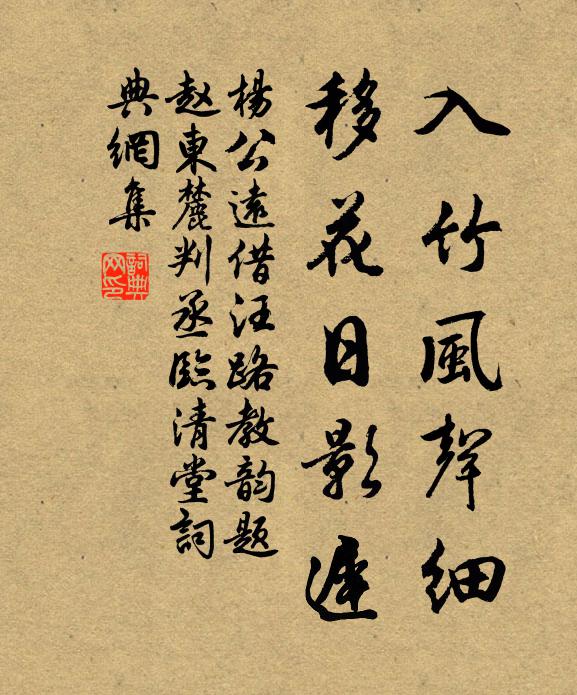 入竹風聲細
移花日影遲
楊公遠借汪路教韵题
赵東麓判丞臨清堂詞
典網集
詞典
网印